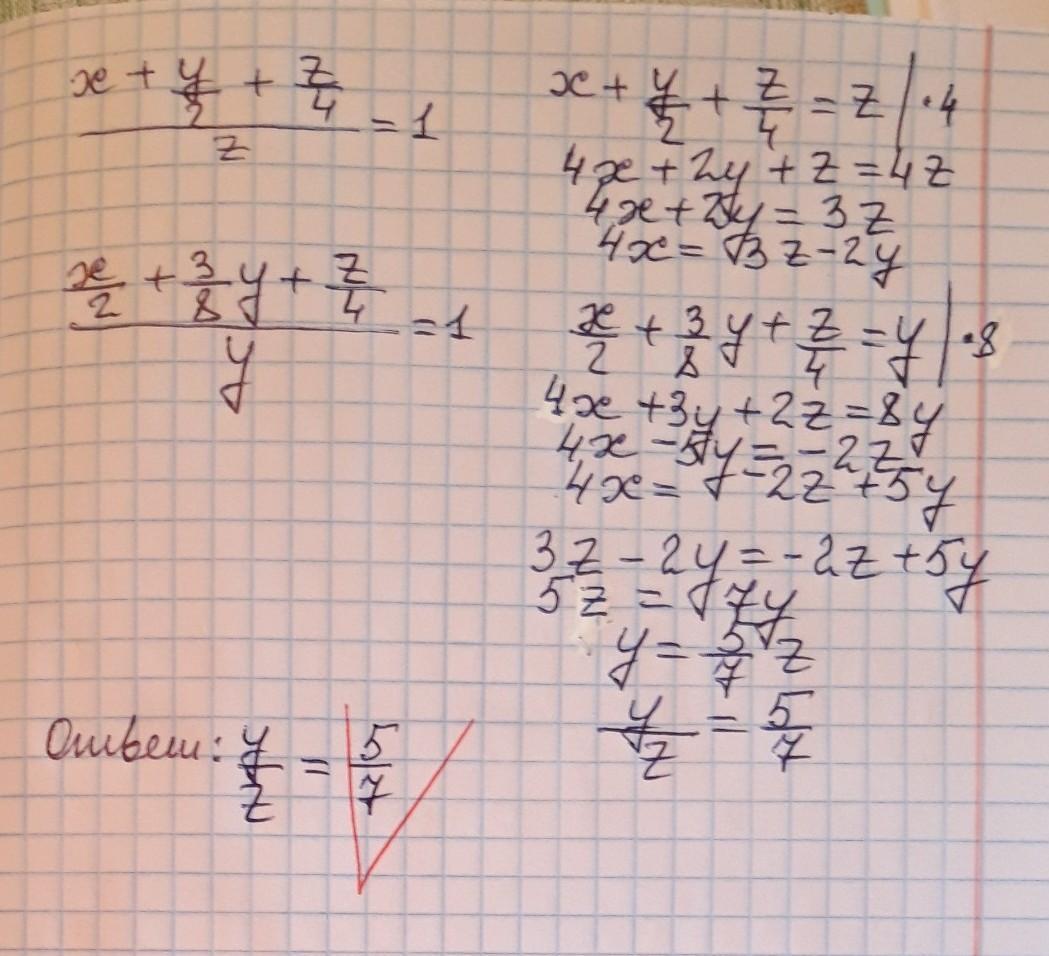 (x + y/2 + z/4)/z = 1
(x/2 + 3/8 y + z/4)/y = 1
x + y/2 + z/4 = z | ·4
4x + 2y + z = 4z
4x + 2y = 3z
4x = 3z - 2y
x/2 + 3/8 y + z/4 = y | ·8
4x + 3y + 2z = 8y
4x - 5y = -2z
4x = -2z + 5y
3z - 2y = -2z + 5y
5z = 7y
y = 5/7 z
y/z = 5/7
Ответ: y/z = 5/7